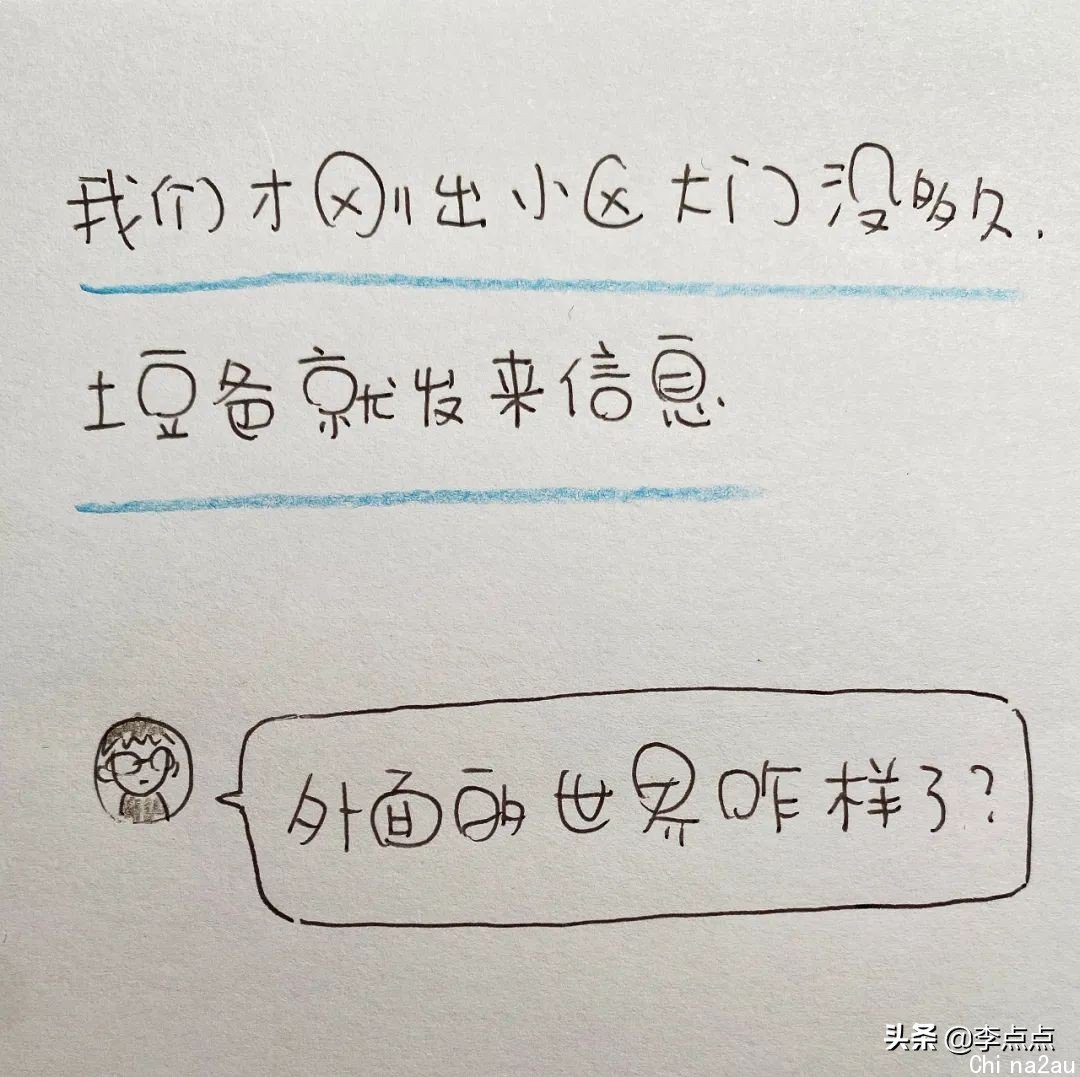 我们才刚出小区大门没多久.
土豆爸就发来信息.
外面的世界咋样了?
头条 @李点点
China2au